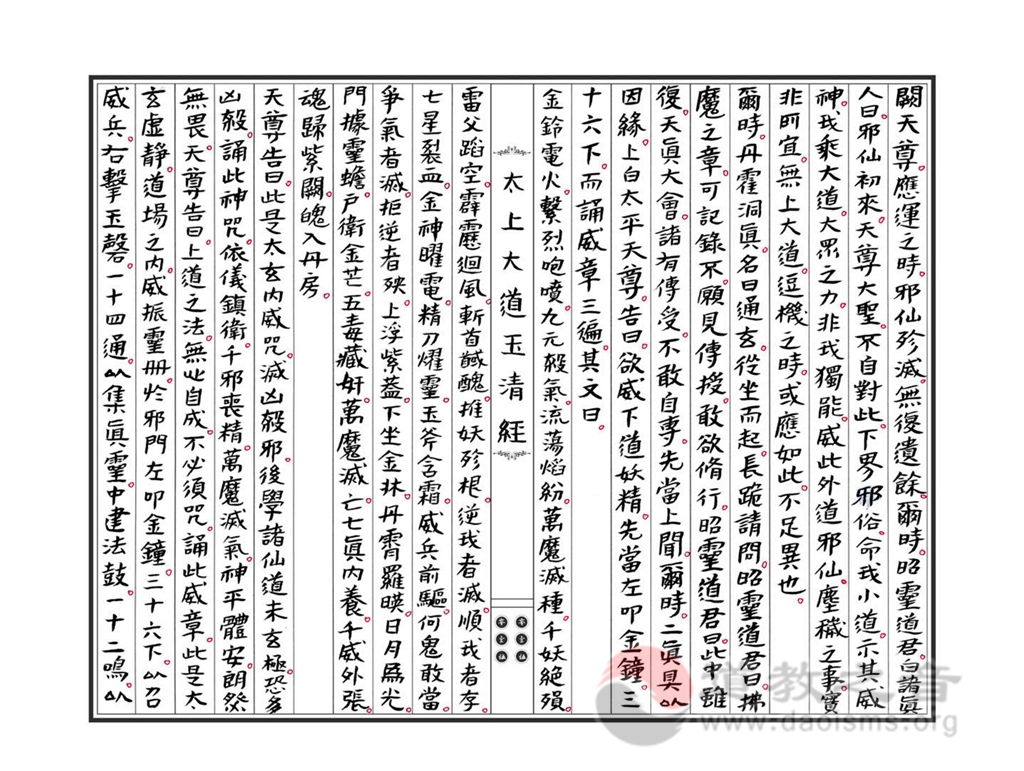 闕天尊應運之時邪仙殄滅無復遺餘爾時昭靈道君白諸眞
人曰邪仙初來天尊大聖不自對此下界邪俗命我小道示其威
神我乘大道大眾之力非我獨能威此外道邪仙塵穢之事實
非所宜無上大道逗機之時或應如此不足異也
爾時丹霍洞眞名曰通玄從坐而起長跪請問昭靈道君曰拂
魔之章可記錄不願見傳授敢欲脩行昭靈道君曰此中雖
復天眞大會諸有傳受不敢自專先當上聞爾時二眞具以
因緣上白太平天尊告曰欲威下道妖精先當左叩金鐘三
十六下而誦威章三遍其文曰
金鈴電火繫烈咆噴九元殺氣流蕩熖紛萬魔滅種千妖絕殞
太上大道玉清經
雷父蹈空霹靂迴風斬首馘醜摧妖殄根逆我者滅順我者存
七星裂血金神曜電精刀燿靈玉斧含霜威兵前驅何鬼敢當
爭氣者滅拒逆者殃上浮紫蓋下坐金牀丹霄羅暎日月爲光
門據靈蟾戶衛金芒五毒藏奸萬魔滅亡七眞內養千威外張
魂歸紫闕魄入丹房
天尊告曰此是太玄內威咒滅凶殺邪後學諸仙道未玄極恐多
凶殺誦此神咒依儀鎮衛千邪喪精萬魔滅氣神平體安朗然
無畏天尊告曰上道之法無心自成不必須咒誦此威章此是太
玄虛靜道場之內威振靈冊於邪門左叩金鐘三十六下以召
威兵右擊玉磬一十四通以集眞靈中建法鼓一十二鳴以
道教之音
www.daoisms.org